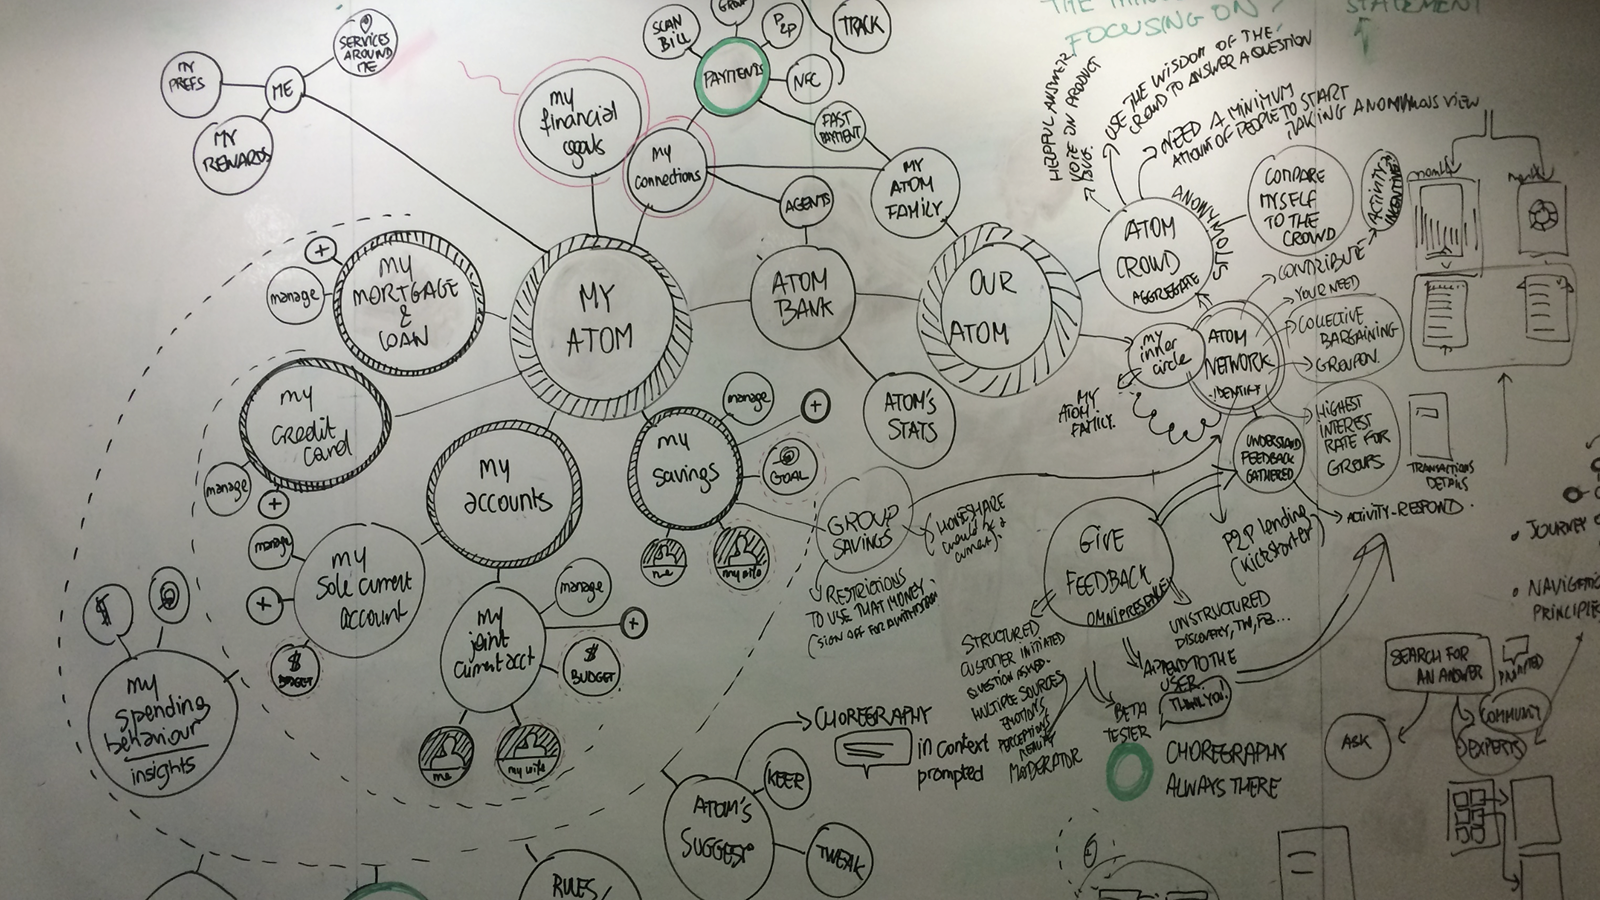 THE
FOCUSING ON
STATEMENT
MY
PREFS
ME
SERVICES
AROUND
ME
MY
REWARDS
SCAN
BILL
GROUP
P2P
TRACK
PAYMENTS
NFC
FAST
PAYMENT
my
financial
goals
my
connections
AGENTS
MY
ATOM
FAMILY
HELPFUL ANSWER,
VOTE ON PRODUCT
USE THE WISDOM OF THE
CROWD TO ANSWER A QUESTION
NEED A MINIMUM
AMOUNT OF PEOPLE TO START
TAKING ANONYMOUS VIEW
ANONYMOUS
ATOM
CROWD
AGGREGATE
COMPARE
MYSELF
TO THE
CROWD
ACTIVITY
INCENTIVE
+
manage
my
MORTGAGE
&
LOAN
MY
ATOM
ATOM
BANK
OUR
ATOM
CONTRIBUTE
YOUR NEED
COLLECTIVE
BARGAINING
GROUPON.
my
inner
circle
ATOM
NETWORK
IDENTITY
MY
ATOM
FAMILY.
ATOM'S
STATS
my
credit
card
manage
+
my
accounts
my
savings
manage
+
GOAL
me
my wife
UNDERSTAND
FEEDBACK
GATHERED
HIGHEST
INTEREST
RATE FOR
GROUPS
TRANSACTIONS
DETAILS
ACTIVITY-RESPOND.
P2P lending
(Kickstarter)
GROUP
SAVINGS
RESTRICTIONS
TO USE THAT MONEY.
GIVE
FEEDBACK
OMNIPRESENCE
manage
+
my
sole current
account
$
BUDGET
my
joint
current acct
manage
+
$
BUDGET
me
my wife
$
my
spending
behaviour
insights
STRUCTURED
CUSTOMER INITIATED
QUESTION ASKED.
MULTIPLE SOURCES
EMOTIONS
PERCEPTIONS
MODERATOR
UNSTRUCTURED
DISCOVERY, TW, FB...
APPEND TO THE
USER.
THANK YOU!
BETA
TESTER
CHOREGRAPHY
ALWAYS THERE
CHOREGRAPHY
in context
prompted
KEEP
ATOM'S
SUGGEST
TWEAK
RULES
JOURNEY
NAVIGATION
PRINCIPLES
SEARCH FOR
AN ANSWER
PROMPTED
COMMUNITY
EXPERTS
ASK